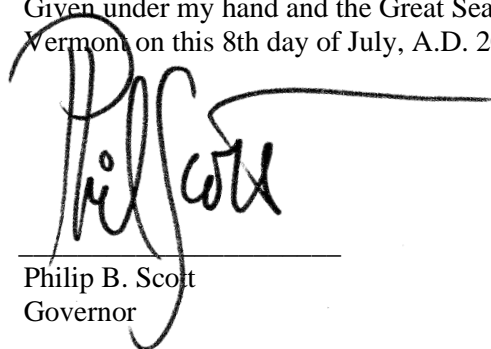 Given under my hand and the Great Sea
Vermont on this 8th day of July, A.D. 2
Phil Scott
Philip B. Scott
Governor